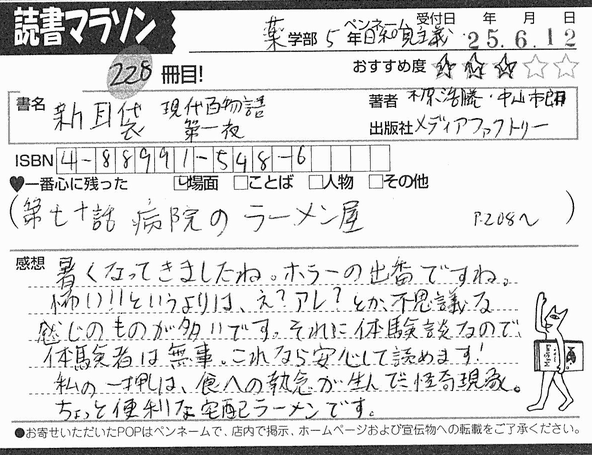 読書マラソン
薬学部 5年 ペンネーム 日和見主義 受付日 年 月 日
25.6.12
228冊目! おすすめ度 ★★★☆☆
書名 新耳袋 現代百物語 第一夜
著者 木原浩勝・中山市朗
出版社 メディアファクトリー
ISBN 4-88991-548-6
♥一番心に残った □場面 □ことば □人物 □その他
(第七十話 病院のラーメン屋 P.208〜)
感想 暑くなってきましたね。ホラーの出番ですね。
怖い!!というよりは、え?アレ?とか、不思議な
感じのものが多いです。それに体験談なので、
体験者は無事。これなら安心して読めます!
私の一押は、食への執念が生んだ怪奇現象。
ちょっと便利な宅配ラーメンです。
●お寄せいただいたPOPはペンネームで、店内で掲示、ホームページおよび宣伝物への転載をご了承ください。